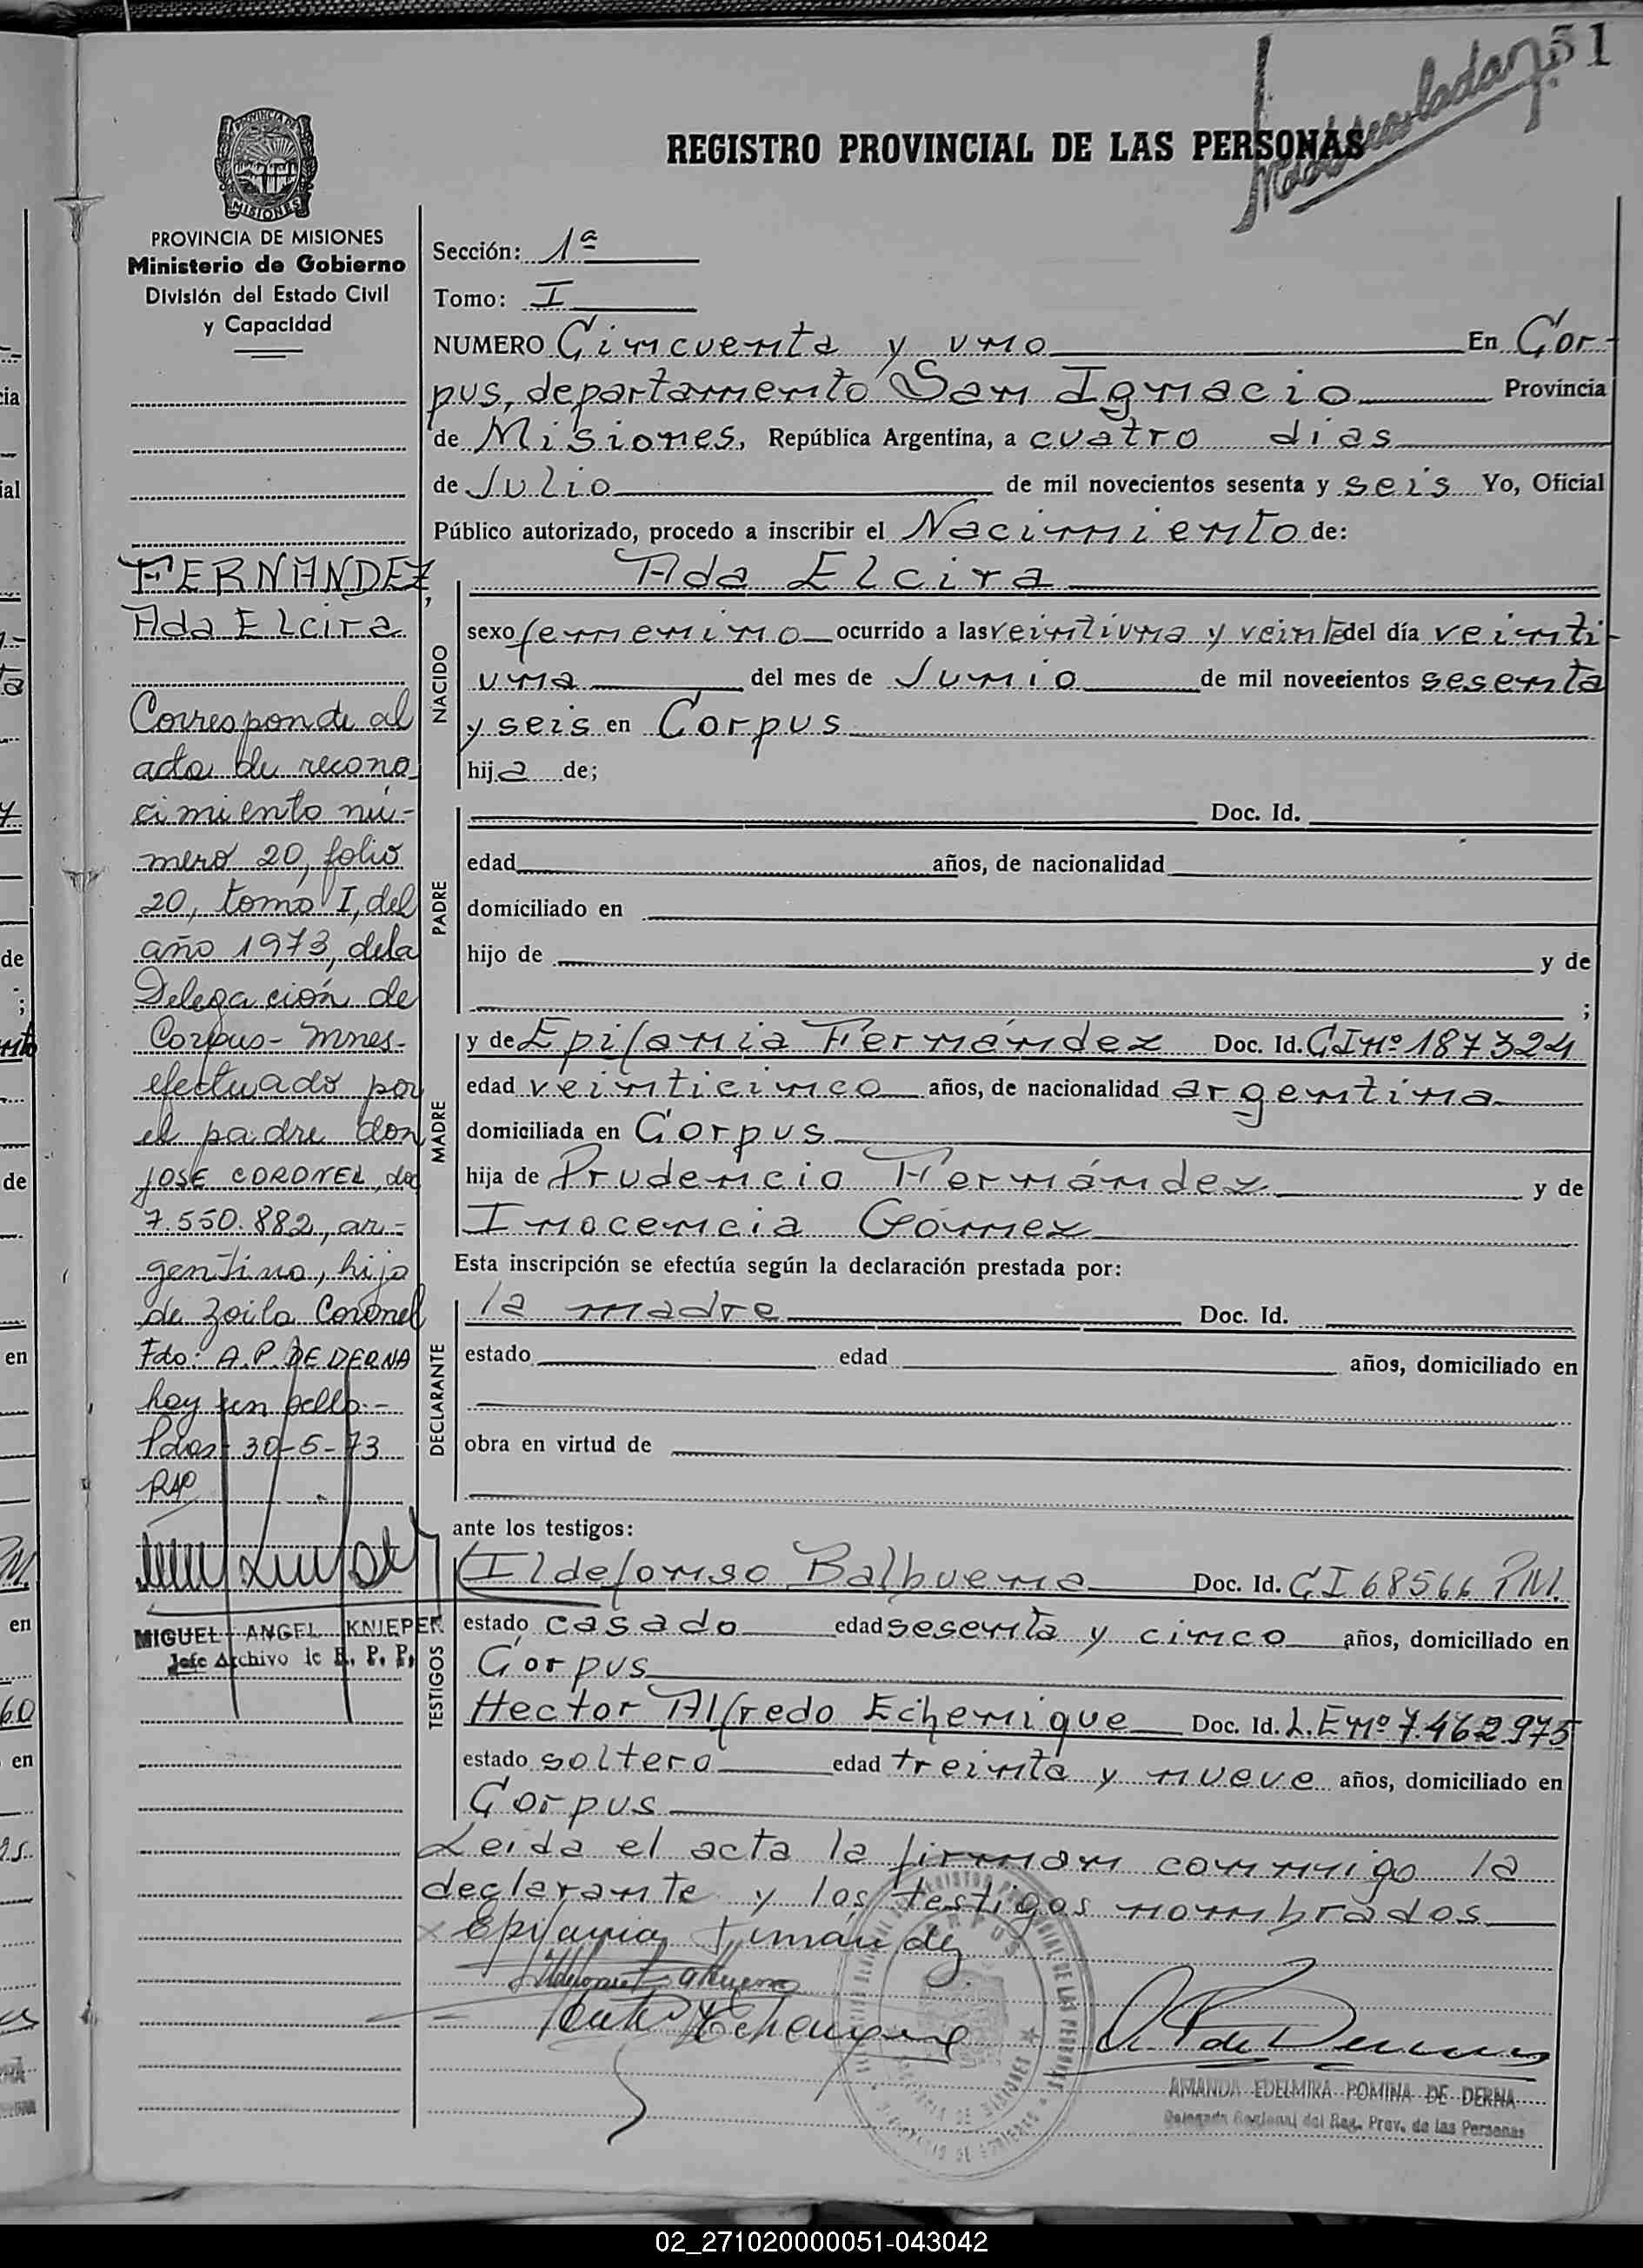 51
REGISTRO PROVINCIAL DE LAS PERSONAS
PROVINCIA DE MISIONES
MISIONES
PROVINCIA DE MISIONES
Ministerio de Gobierno
División del Estado Civil
y Capacidad
FERNANDEZ,
Ada Elcira
Corresponde al
acta de recono
cimiento nú-
mero 20, folio
20, tomo I, del
año 1973, de la
Delegación de
Corpus - Mnes-
efectuado por
el padre don
JOSE CORONEL, doc
7.550.882, ar-
gentino, hijo
de Zoilo Coronel
Fdo: A.P. DE DERNA
hay un sello.-
Pdas 30-5-73
MIGUEL ANGEL KNIEPER
Jefe Archivo de R. P. P.
Sección: 1ª
Tomo: I
NUMERO Cincuenta y uno En Cor-
pus, departamento San Ignacio Provincia
de Misiones, República Argentina, a cuatro dias
de Julio de mil novecientos sesenta y seis Yo, Oficial
Público autorizado, procedo a inscribir el Nacimiento de:
NACIDO
Ada Elcira
sexo femenino ocurrido a las veintiuna y veinte del día veinti-
una del mes de Junio de mil novecientos sesenta
y seis en Corpus
hija de;
PADRE
Doc. Id.
edad años, de nacionalidad
domiciliado en
hijo de y de
;
MADRE
y de Epifania Fernández Doc. Id. CI nº 187324
edad veinticinco años, de nacionalidad argentina
domiciliada en Corpus
hija de Prudencio Fernández y de
Inocencia Gómez
Esta inscripción se efectúa según la declaración prestada por:
DECLARANTE
la madre Doc. Id.
estado edad años, domiciliado en
obra en virtud de
ante los testigos:
TESTIGOS
Ildefonso Balbuena Doc. Id. CI 68566 PM.
estado casado edad sesenta y cinco años, domiciliado en
Corpus
Hector Alfredo Echenique Doc. Id. L.E nº 7.462.975
estado soltero edad treinta y nueve años, domiciliado en
Corpus
Leida el acta la firman conmigo la
declarante y los testigos nombrados
Epifania Fernández
AMANDA EDELMIRA POMINA DE DERNA
Delegada Regional del Reg. Prov. de las Personas
02_271020000051-043042